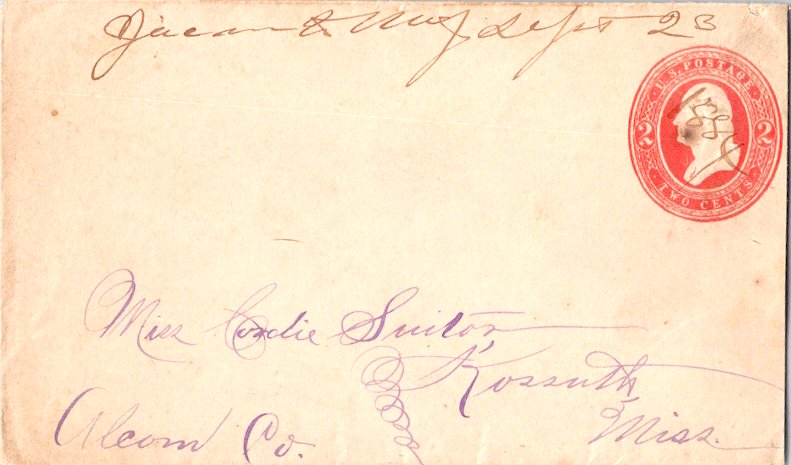 Sept 23
U.S. POSTAGE
1884
2 2
TWO CENTS
Miss Cordie Suitor,
Kossuth,
Alcorn Co. Miss.